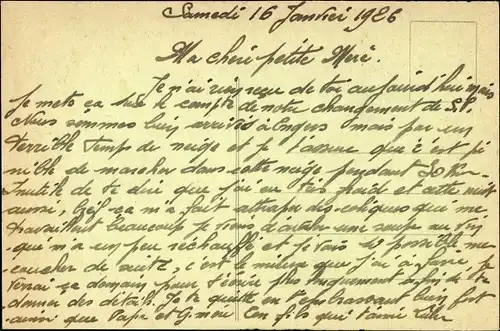 Samedi 16 Janvier 1926
Ma cheri petite Meré.
Je n'ai rien reçue de toi aujourd'hui mais
Je mets ça sur le compte de notre changement de S.P.
Nous sommes bien arrivés à Longers mais par un
terrible temps de neige et je t'assure que c'est pé
nible de marcher dans cette neige pendant 20 Km
Inutile de te dire que j'ai eu très froid et cette nuit
aussi, bref ça m'a fait attraper des coliques qui me
travaillent beaucoup je viens d'avaler une soupe au vin
qui m'a un peu rechauffé et je vais si possible me
coucher de suite, c'est le mieux que j'ai à faire, je
verai ça demain pour t'écrire plus longuement afin de te
donner des details. Je te quitte en t'embrassant bien fort
ainsi que Papa et G. mere Ton fils qui t'aime